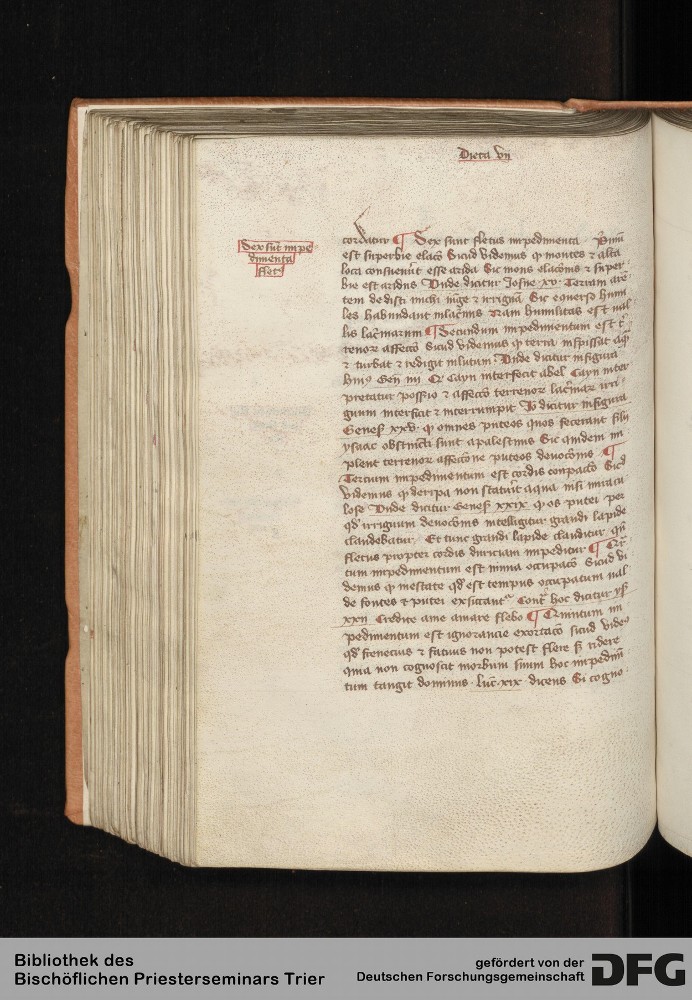 Dieta vii
Sex sūt impe
dimenta
flet9
cordatur ¶ Sex sunt fletus impedimenta · Primū
est superbie elacō Sicud videmus qꝫ montes ⁊ alta
loca consueuūt esse arida Sic mons elacōnis ⁊ super
bie est aridus Unde dicitur Iosue · xv · Terram arē
tem dedisti michi iūge ⁊ irriguā Sic econuerso humi
les habundant in lacrimis Nam humilitas est val
lis lacrīarum ¶ Secundum impedimentum est t̄
renor affectō Sicud videmus qꝫ terra inspissat aqꝫ
⁊ turbat ⁊ redigit in lutum · Unde dicitur in figura
hui9 Gen̄ iiii Qꝫ Cayn interfecit abel Cayn inter
pretatur possessio ⁊ affectō terrenor lacrimar irri
guum interficit ⁊ interrumpit Un̄ dicitur in figura
Genes̄ xxvi · qꝫ omnes puteos quos fecerant filii
ysaac obstructi sunt a palestinis Sic quidem im
plent terrenor affectione puteos deuocōnis · ¶
Tercium impedimentum est cordis conpactō Sicd
videmus qꝫ de ripa non staturit aqua nisi miracu
lose Unde dicitur Genes̄ xxix qꝫ os putei per
qd irriguum deuocōnis intelligitur grandi lapide
claudebatur Et tunc grandi lapide clauditur qn̄
fletus propter cordis duriciam impeditur ¶ Qr
tum impedimentum est nimia occupacō Sicud vi
demus qꝫ in estate qd est tempus occupatum val
de fontes ⁊ putei exsiccant᷑ Cont̄ hoc dicitur ys̄
xxii Recedite a me amare flebo ¶ Quintum im
pedimentum est ignorancie exortacō sicud videꝰ
qd freneticus ⁊ fatuus non potest flere s̄ ridere
quia non cognoscit morbum suum hoc impedim̄
tum tangit dominus · luc̄ · xix · dicens Si cogno
Bibliothek des
Bischöflichen Priesterseminars Trier
gefördert von der
Deutschen Forschungsgemeinschaft
DFG